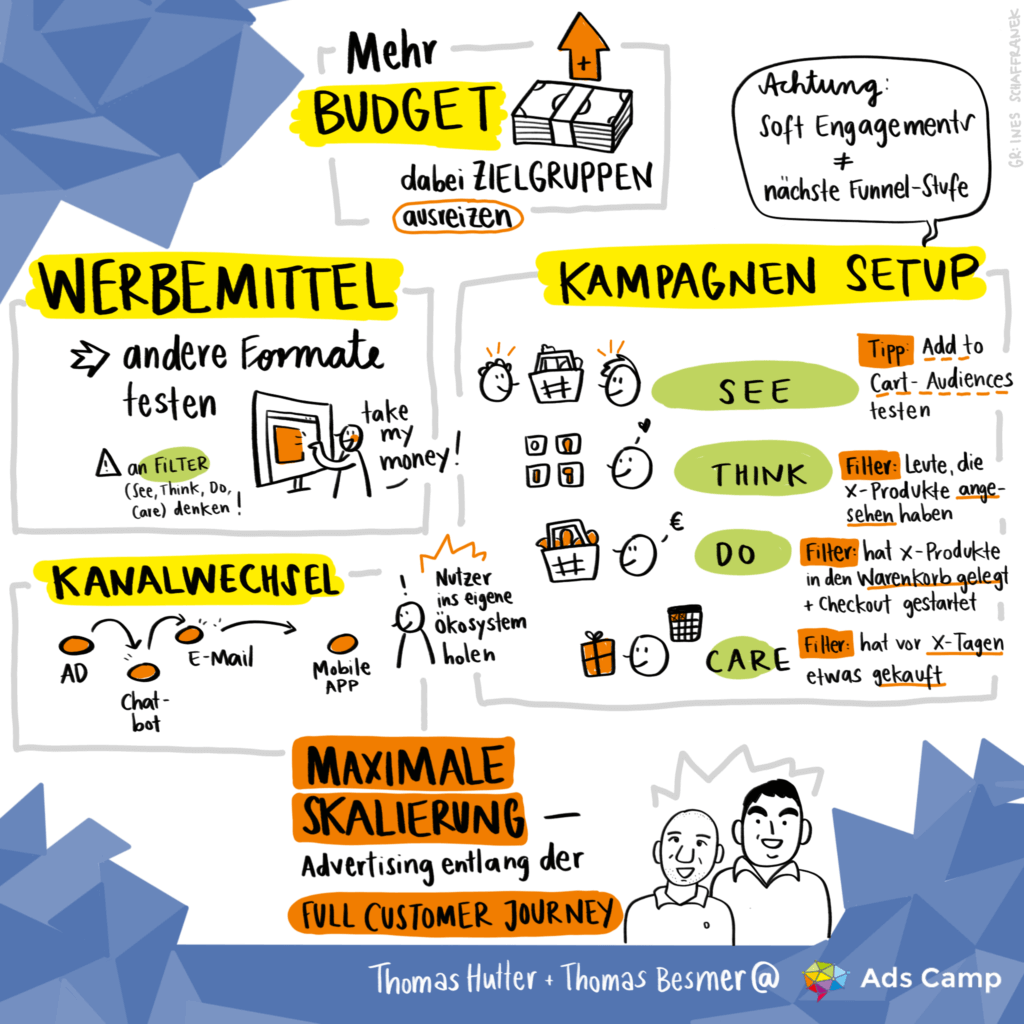 Mehr
BUDGET
+
dabei ZIELGRUPPEN
ausreizen
GR: INES SCHAFFRANEK
Achtung:
Soft Engagements
≠
nächste Funnel-Stufe
WERBEMITTEL
andere Formate
testen
an FILTER
(See, Think, Do,
Care) denken!
take
my
money!
KAMPAGNEN SETUP
SEE
Tipp: Add to
Cart-Audiences
testen
THINK
Filter: Leute, die
X-Produkte ange-
sehen haben
€
DO
Filter: hat X-Produkte
in den Warenkorb gelegt
+ Checkout gestartet
CARE
Filter: hat vor X-Tagen
etwas gekauft
KANALWECHSEL
AD
Chat-
bot
E-Mail
Mobile
APP
!
Nutzer
ins eigene
Ökosystem
holen
MAXIMALE
SKALIERUNG —
Advertising entlang der
FULL CUSTOMER JOURNEY
Thomas Hutter + Thomas Besmer @ Ads Camp